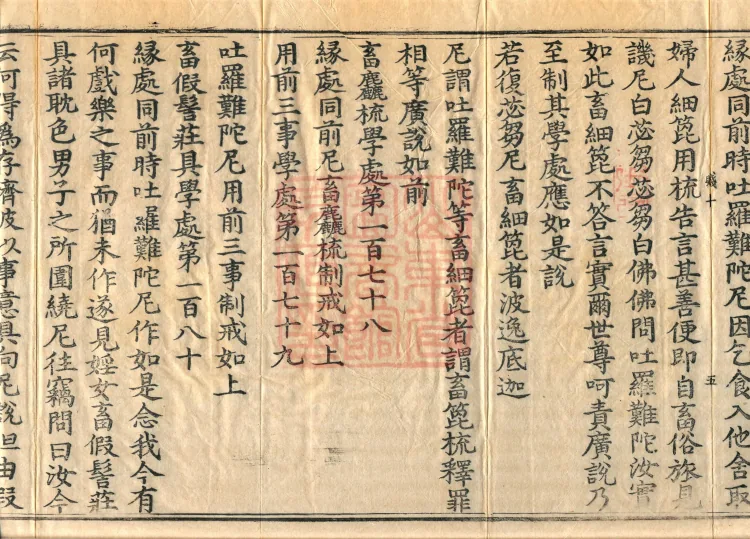 緣處同前時吐羅難陀尼因乞食入他舍取
婦人細篦用梳告言甚善便即自畜俗旅見
譏尼白苾芻苾芻白佛佛問吐羅難陀汝實
如此畜細篦不答言實爾世尊呵責廣說乃
至制其學處應如是說
若復苾芻尼畜細篦者波逸底迦
尼謂吐羅難陀等畜細篦者謂畜篦梳釋罪
相等廣說如前
畜麤梳學處第一百七十八
緣處同前尼畜麤梳制戒如上
用前三事學處第一百七十九
吐羅難陀尼用前三事制戒如上
畜假髻莊具學處第一百八十
緣處同前時吐羅難陀尼作如是念我今有
何戲樂之事而猶未作遂見婬女畜假髻莊
具諸耽色男子之所圍繞尼往竊問曰汝今
云何得為存濟彼以事意具向尼說但由假
五